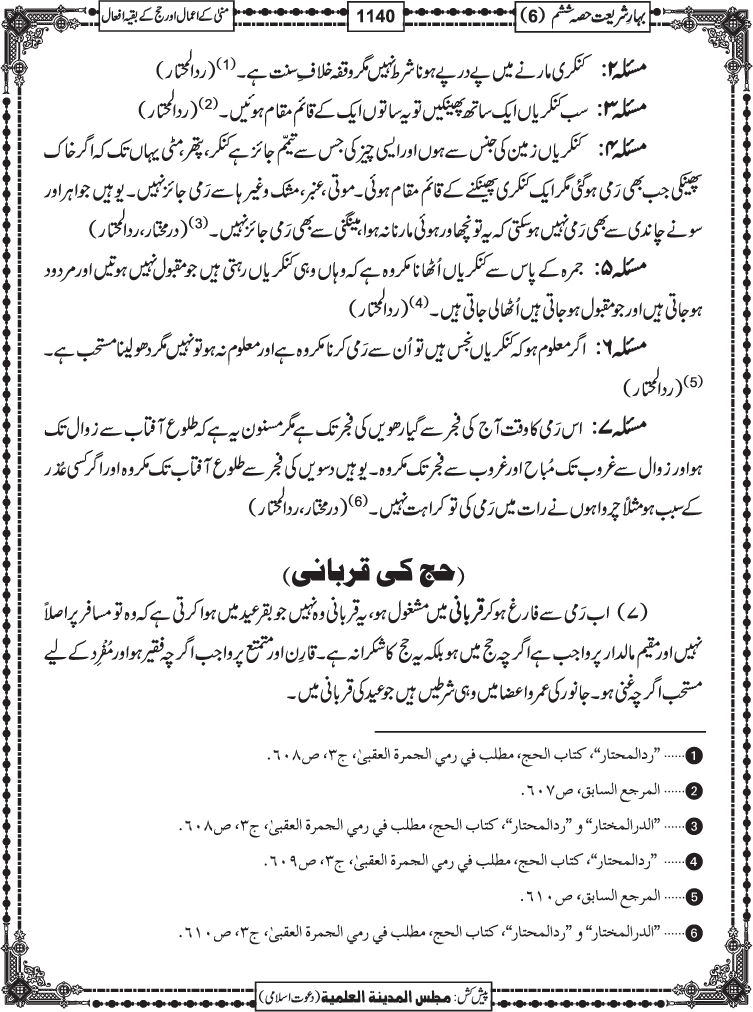 بہار شریعت حصہ ششم (6)
1140
منیٰ کے اعمال اور حج کے بقیہ افعال
مسئلہ ۲: کنکری مارنے میں پے درپے ہونا شرط نہیں مگر وقفہ خلافِ سنت ہے۔(1) (ردالمحتار)
مسئلہ ۳: سب کنکریاں ایک ساتھ پھینکیں تو یہ ساتوں ایک کے قائم مقام ہوئیں۔(2) (ردالمحتار)
مسئلہ ۴: کنکریاں زمین کی جنس سے ہوں اور ایسی چیز کی جس سے تیمّم جائز ہے کنکر، پتھر، مٹی یہاں تک کہ اگر خاک
پھینکی جب بھی رَمی ہوگئی مگر ایک کنکری پھینکنے کے قائم مقام ہوئی۔ موتی، عنبر، مشک وغیرہا سے رَمی جائز نہیں۔ یوہیں جواہر اور
سونے چاندی سے بھی رَمی نہیں ہوسکتی کہ یہ تو نچھاور ہوئی مارنا نہ ہوا، مینگنی سے بھی رَمی جائز نہیں۔(3) (درمختار، ردالمحتار)
مسئلہ ۵: جمرہ کے پاس سے کنکریاں اُٹھانا مکروہ ہے کہ وہاں وہی کنکریاں رہتی ہیں جو مقبول نہیں ہوتیں اور مردود
ہوجاتی ہیں اور جو مقبول ہوجاتی ہیں اُٹھالی جاتی ہیں۔(4) (ردالمحتار)
مسئلہ ۶: اگر معلوم ہو کہ کنکریاں نجس ہیں تو اُن سے رَمی کرنا مکروہ ہے اور معلوم نہ ہو تو نہیں مگر دھولینا مستحب ہے۔
(5) (ردالمحتار)
مسئلہ ۷: اس رَمی کا وقت آج کی فجر سے گیارھویں کی فجر تک ہے مگر مسنون یہ ہے کہ طلوع آفتاب سے زوال تک
ہو اور زوال سے غروب تک مُباح اور غروب سے فجر تک مکروہ۔ یوہیں دسویں کی فجر سے طلوع آفتاب تک مکروہ اور اگر کسی عُذر
کے سبب ہو مثلاً چرواہوں نے رات میں رَمی کی تو کراہت نہیں۔(6) (درمختار، ردالمحتار)
(حج کی قربانی)
(۷) اب رَمی سے فارغ ہوکر قربانی میں مشغول ہو، یہ قربانی وہ نہیں جو بقرعید میں ہوا کرتی ہے کہ وہ تو مسافر پر اصلاً
نہیں اور مقیم مالدار پر واجب ہے اگرچہ حج میں ہو بلکہ یہ حج کا شکرانہ ہے۔ قارِن اور متمتع پر واجب اگرچہ فقیر ہو اور مُفْرِد کے لیے
مستحب اگرچہ غنی ہو۔ جانور کی عمر و اعضا میں وہی شرطیں ہیں جو عید کی قربانی میں۔
1 ...... "ردالمحتار"، كتاب الحج، مطلب في رمي الجمرة العقبىٰ، ج٣، ص٦٠٨.
2 ...... المرجع السابق، ص٦٠٧.
3 ...... "الدرالمختار" و "ردالمحتار"، كتاب الحج، مطلب في رمي الجمرة العقبىٰ، ج٣، ص٦٠٨.
4 ...... "ردالمحتار"، كتاب الحج، مطلب في رمي الجمرة العقبىٰ، ج٣، ص٦٠٩.
5 ...... المرجع السابق، ص٦١٠.
6 ...... "الدرالمختار" و "ردالمحتار"، كتاب الحج، مطلب في رمي الجمرة العقبىٰ، ج٣، ص٦١٠.
پیش کش: مجلس المدینة العلمیة (دعوت اسلامی)